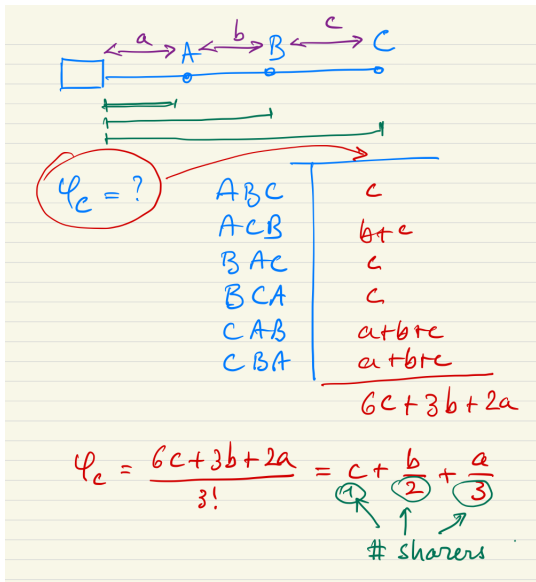 a b c
A B C
φ_c = ?
ABC c
ACB b+c
BAC c
BCA c
CAB a+b+c
CBA a+b+c
6c+3b+2a
φ_c = (6c+3b+2a)/3! = c + b/2 + a/3
1
# sharers